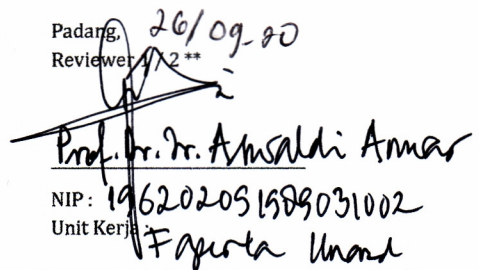 Padang, 26/09-20
Reviewer 1 / 2 **
Prof. Dr. Ir. Aswaldi Anwar
NIP : 196202091989031002
Unit Kerja : Faperta Unand